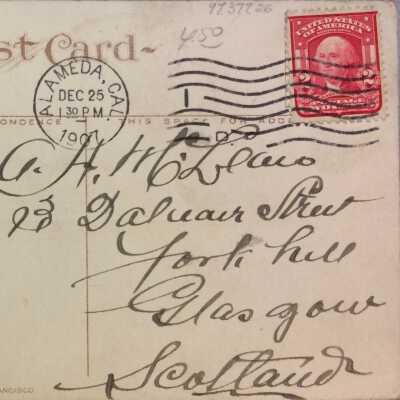 9737226
4.50
st Card
UNITED STATES
OF AMERICA
2 2
ALAMEDA, CAL.
DEC 25
1 30 P.M.
1907
D
ONDENCE THIS SPACE FOR ADDR
A. A. McLean
93 Dalnair Street
York hill
Glasgow
Scotland
ANCISCO